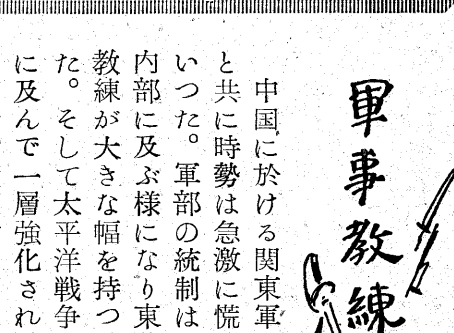 軍事教練
中国に於ける関東軍
と共に時勢は急激に慌
いつた。軍部の統制は
内部に及ぶ様になり東
教練が大きな幅を持つ
た。そして太平洋戦争
に及んで一層強化され